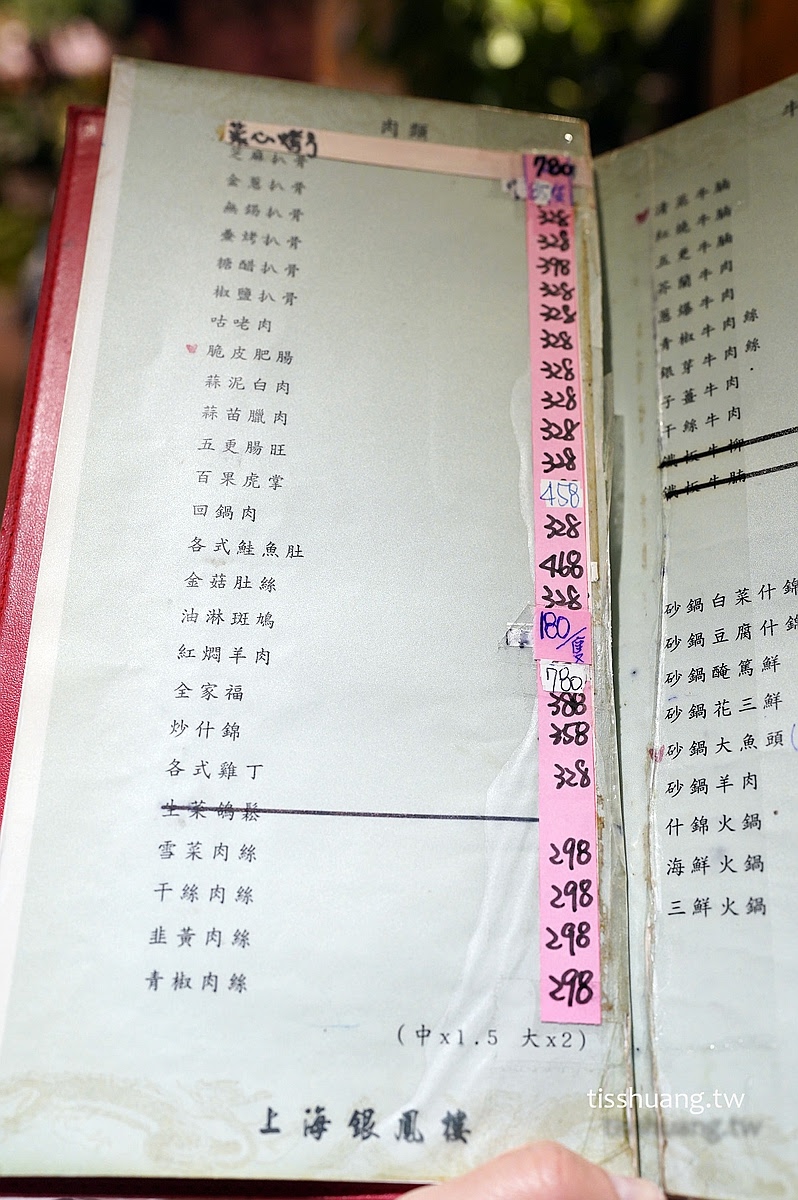 肉類
菜心烤方 780
芝麻扒骨
金蔥扒骨 328
無錫扒骨 328
烤扒骨 398
糖醋扒骨 328
椒鹽扒骨 328
咕咾肉 328
脆皮肥腸 328
蒜泥白肉 328
蒜苗臘肉 328
五更腸旺 328
百果虎掌 458
回鍋肉 328
各式鮭魚肚 468
金菇肚絲 328
油淋斑鳩 180/隻
紅燜羊肉 780
全家福 388
炒什錦 358
各式雞丁 328
生菜鴿鬆
雪菜肉絲 298
干絲肉絲 298
韭黃肉絲 298
青椒肉絲 298
(中x1.5 大x2)
上海銀鳳樓
牛
清蒸牛腩
紅燒牛腩
五更牛腩
芥蘭牛肉
蔥爆牛肉
青椒牛肉絲
銀芽牛肉絲
子薑牛肉
干絲牛肉
鐵板牛柳
鐵板牛腩
砂鍋白菜什錦
砂鍋豆腐什錦
砂鍋醃篤鮮
砂鍋花三鮮
砂鍋大魚頭
砂鍋羊肉
什錦火鍋
海鮮火鍋
三鮮火鍋
tisshuang.tw
tisshuang.tw